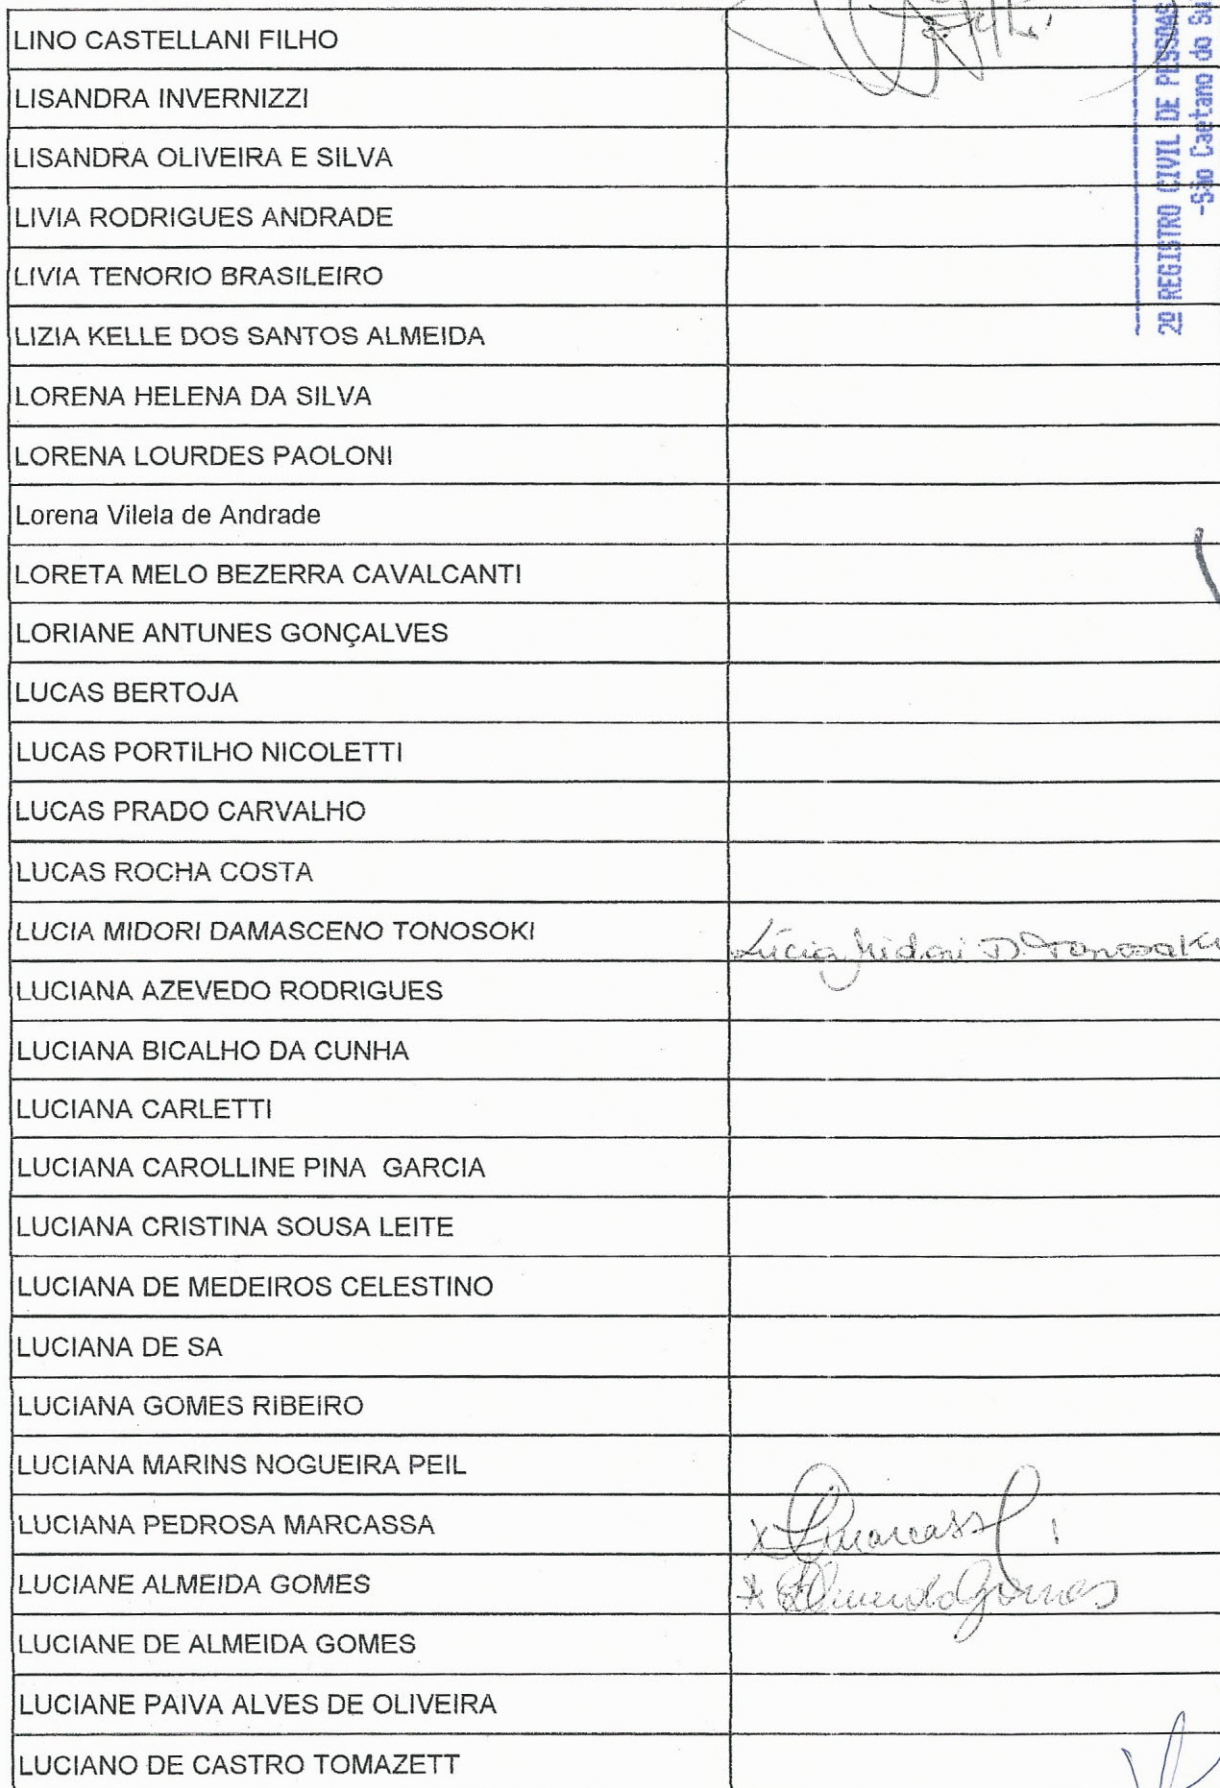 LINO CASTELLANI FILHO
LISANDRA INVERNIZZI
LISANDRA OLIVEIRA E SILVA
LIVIA RODRIGUES ANDRADE
LIVIA TENORIO BRASILEIRO
LIZIA KELLE DOS SANTOS ALMEIDA
LORENA HELENA DA SILVA
LORENA LOURDES PAOLONI
Lorena Vilela de Andrade
LORETA MELO BEZERRA CAVALCANTI
LORIANE ANTUNES GONÇALVES
LUCAS BERTOJA
LUCAS PORTILHO NICOLETTI
LUCAS PRADO CARVALHO
LUCAS ROCHA COSTA
LUCIA MIDORI DAMASCENO TONOSOKI Lúcia Midori D. Tonosoki
LUCIANA AZEVEDO RODRIGUES
LUCIANA BICALHO DA CUNHA
LUCIANA CARLETTI
LUCIANA CAROLLINE PINA GARCIA
LUCIANA CRISTINA SOUSA LEITE
LUCIANA DE MEDEIROS CELESTINO
LUCIANA DE SA
LUCIANA GOMES RIBEIRO
LUCIANA MARINS NOGUEIRA PEIL
LUCIANA PEDROSA MARCASSA
LUCIANE ALMEIDA GOMES
LUCIANE DE ALMEIDA GOMES
LUCIANE PAIVA ALVES DE OLIVEIRA
LUCIANO DE CASTRO TOMAZETT
2º REGISTRO CIVIL DE PESSOAS
-São Caetano do Su